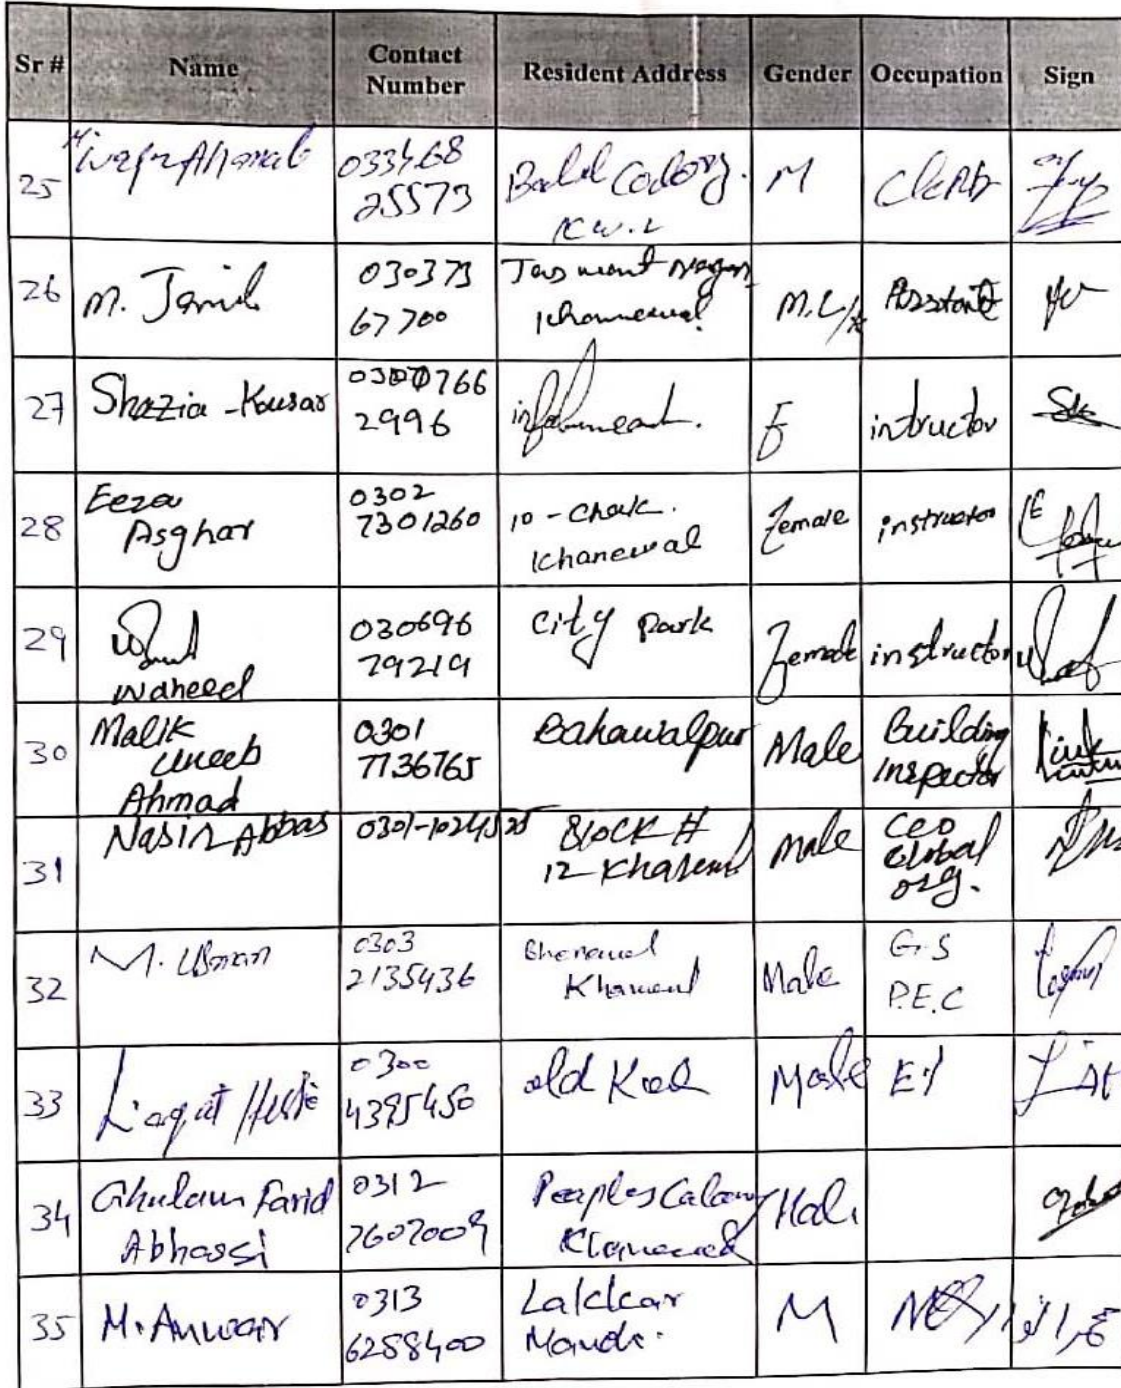 Sr # Name Contact Number Resident Address Gender Occupation Sign
25 Ahmad 0334 68 25573 Colony. M Clerk
26 M. Jamil 030373 67700 Khanewal M Assistant
27 Shazia - Kousar 0300766 2996 F intructor
28 Eeza Asghar 0302 7301260 10 - Chak. Khanewal Female instructor
29 Waheed 030696 79219 City Park Female instructor
30 Malik Uneeb Ahmad 0301 7736765 Bahawalpur Male Building Inspector
31 Nasir Abbas 0301-1024525 Block # 12 Khanewal Male CEO Global org.
32 M. Usman 0303 2135436 Khanewal Male G.S P.E.C
33 Liaqat 0300 4395450 old Male
34 Ghulam Farid Abhassi 0312 7607009 Peoples Colony Khanewal Male
35 M. Anwar 0313 6288400 Lakkar Mandi. M